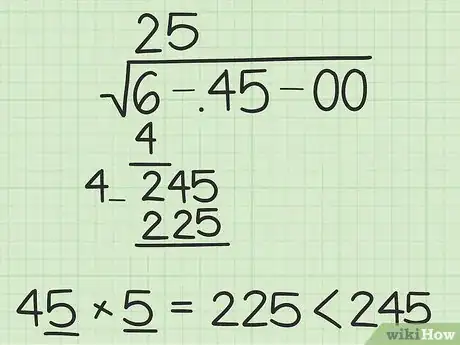 25
√6-.45-00
4
4_ 245
225
45 × 5 = 225 < 245
wikiHow